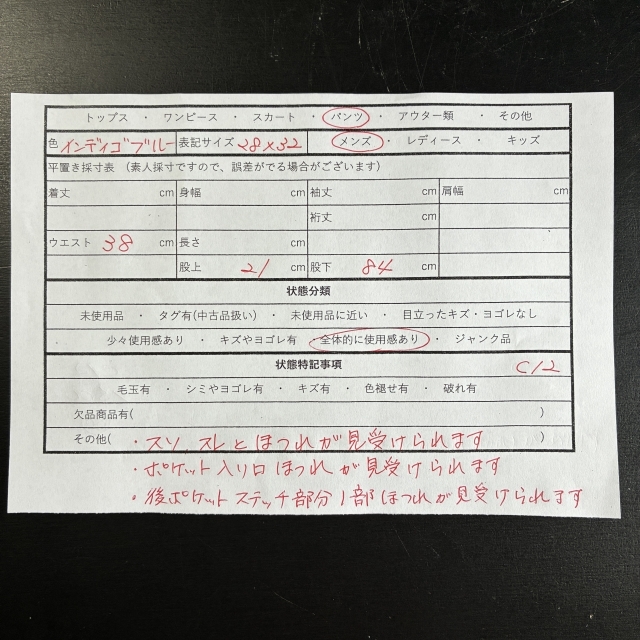 トップス ・ ワンピース ・ スカート ・ パンツ ・ アウター類 ・ その他
色 インディゴブルー 表記サイズ 28×32 メンズ ・ レディース ・ キッズ
平置き採寸表 （素人採寸ですので、誤差がでる場合がございます）
着丈 cm 身幅 cm 袖丈 cm 肩幅 cm
裄丈 cm
ウエスト 38 cm 長さ cm
股上 21 cm 股下 84 cm
状態分類
未使用品 ・ タグ有(中古品扱い) ・ 未使用品に近い ・ 目立ったキズ・ヨゴレなし
少々使用感あり ・ キズやヨゴレ有 ・ 全体的に使用感あり ・ ジャンク品
状態特記事項 C12
毛玉有 ・ シミやヨゴレ有 ・ キズ有 ・ 色褪せ有 ・ 破れ有
欠品商品有( )
その他( ・スソ、スレとほつれが見受けられます )
・ポケット入り口ほつれが見受けられます
・後ポケットステッチ部分1部ほつれが見受けられます